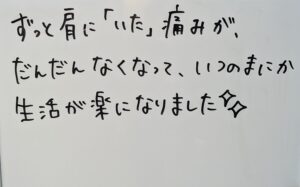 ずっと肩に「いた」痛みが、
だんだんなくなって、いつのまにか
生活が楽になりました✨